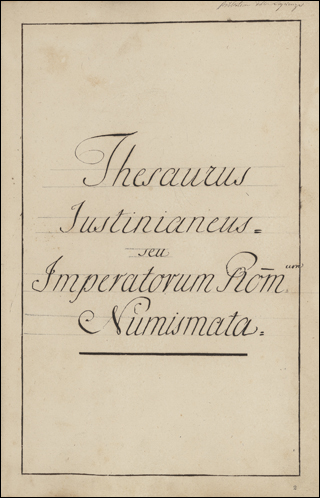 Thesaurus
Iustinianeus=
seu
Imperatorum Rom̅. uorū
Numismata=